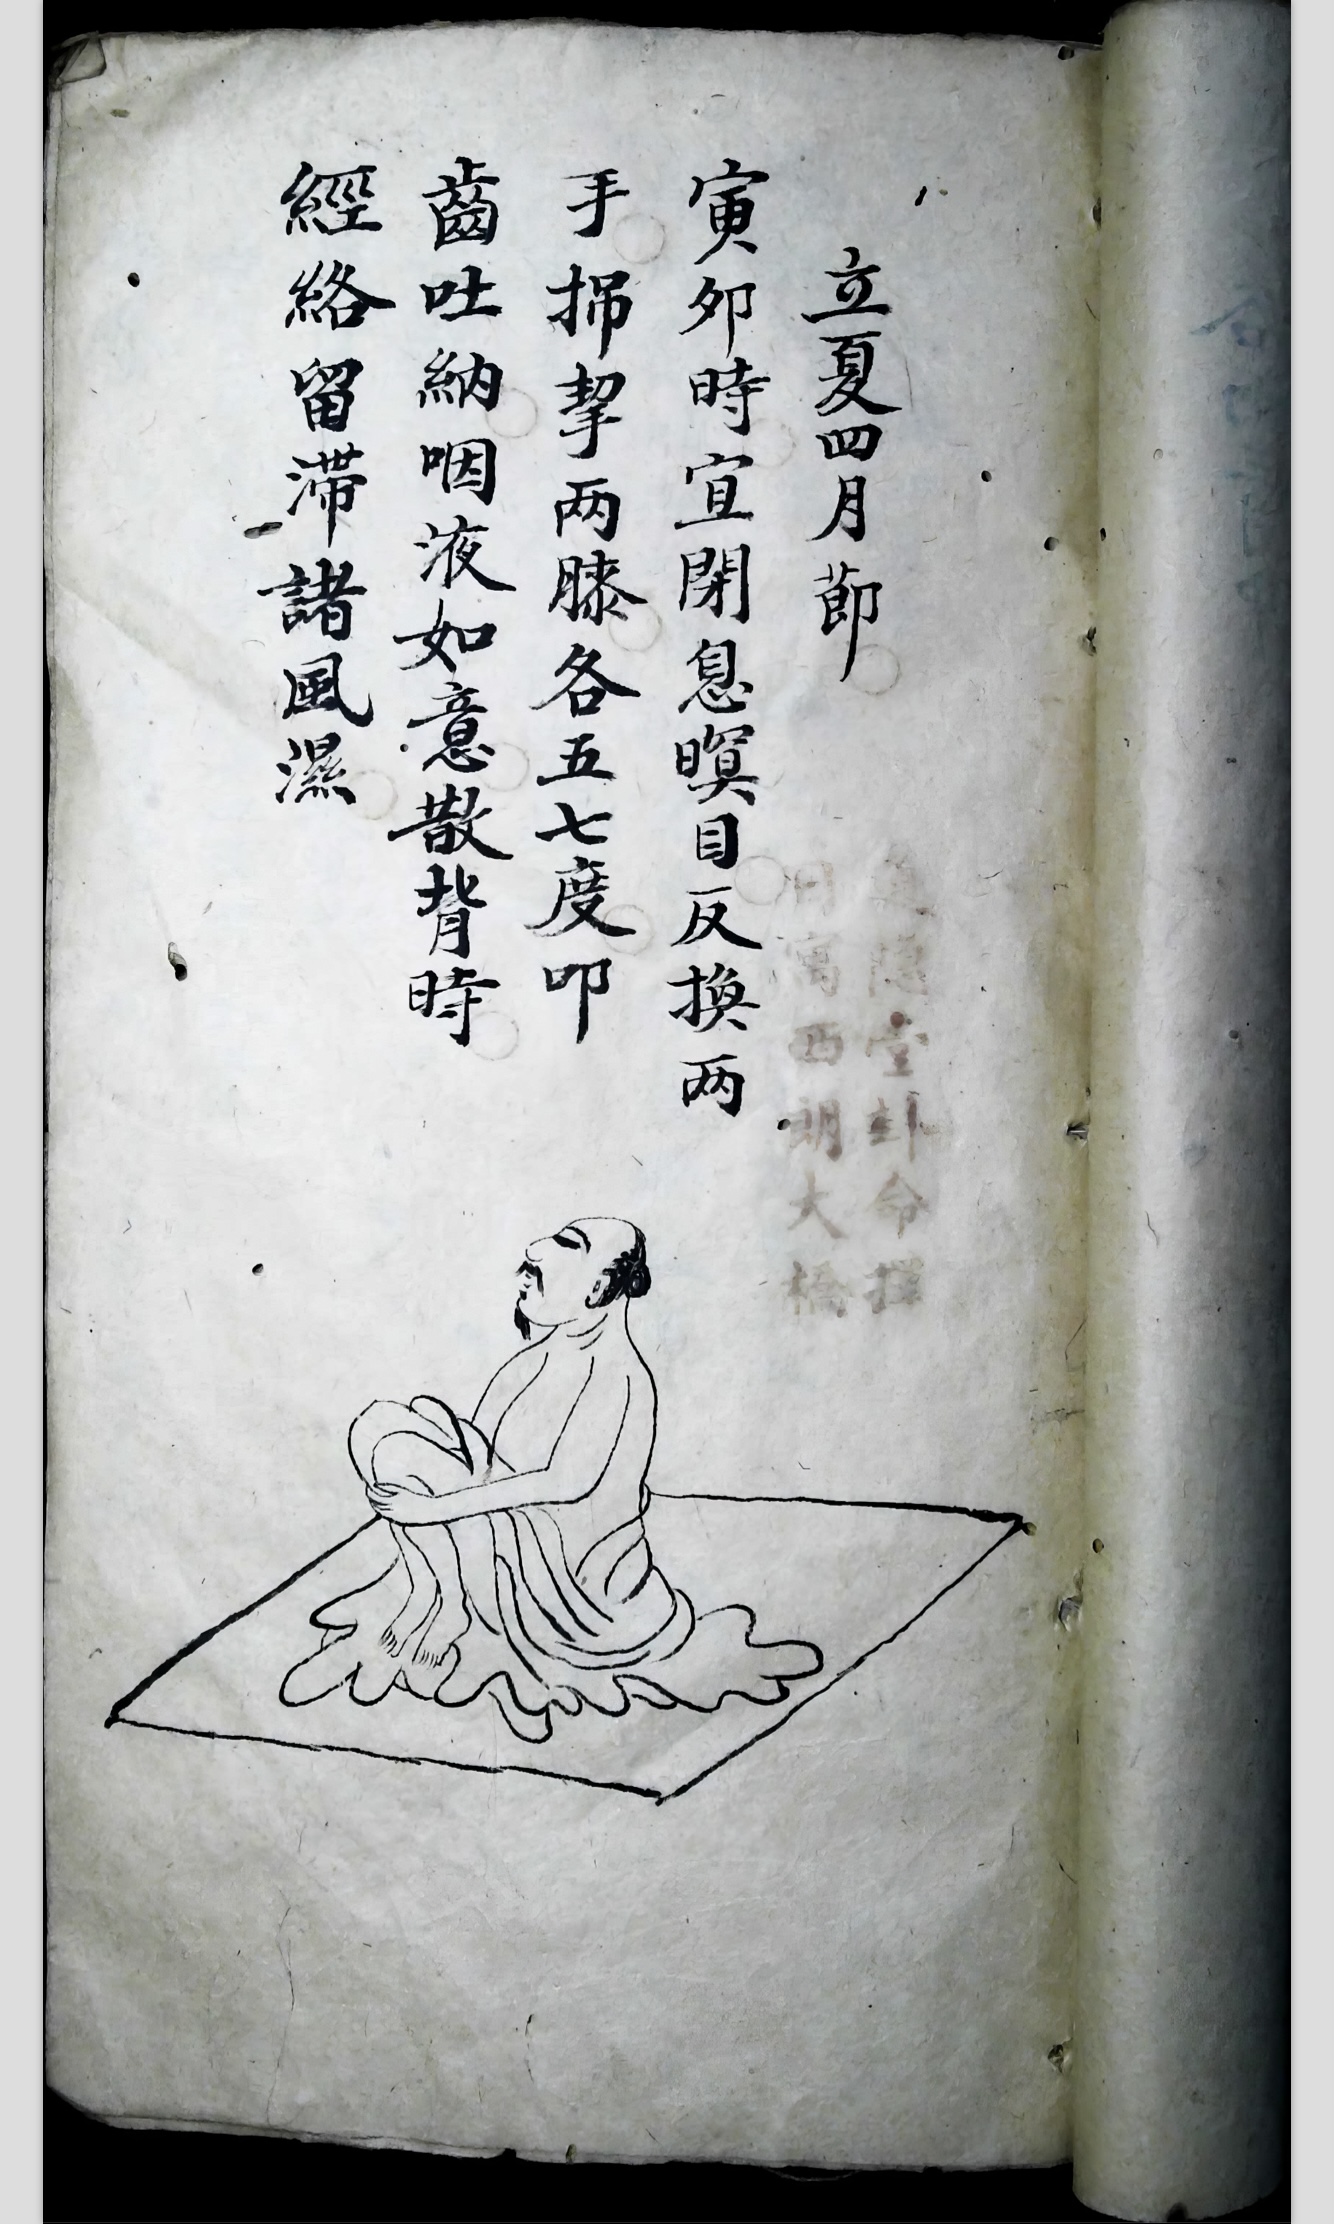 立夏四月節
寅夘時宜閉息暝目反換两
手掃挈两膝各五七度叩
齒吐納咽液如意散背時
經絡留滯諸風濕
隐堂卦命擇
日寓西朗大橋